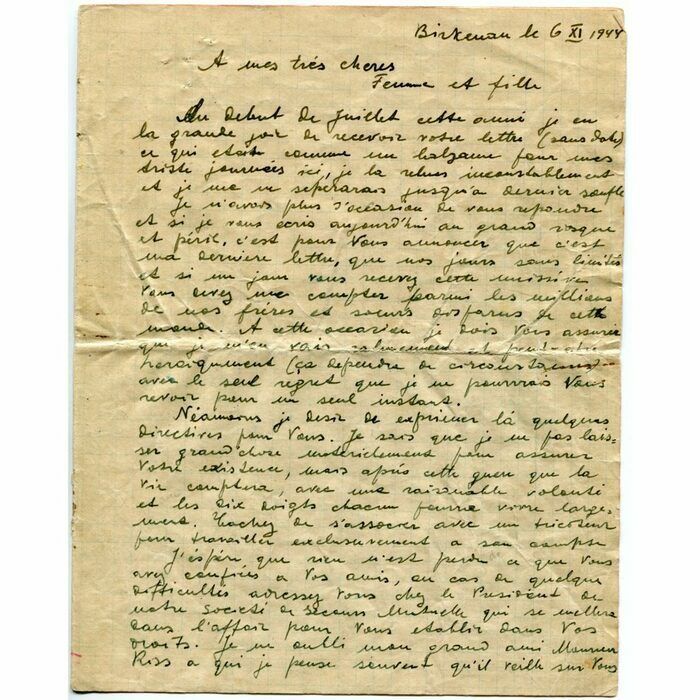 Birkenau le 6 XI 1944
A mes très cheres
Femme et fille
Au debut de Juillet cette anni je eu
la grande joi de recevoir votre lettre (sans date)
ce qui etait comme un balzame pour mes
triste journeés ici, je la relus inconstablement
et je me ne séperarais jusqu'a dernier soufle
Je n'avais plus l'occasion de vous repondre
et si je vous ecris aujourd'hui au grand risque
et péril, c'est pour Vous annoncer que c'est
ma derniere lettre, que nos jours sont limités
et si un jour vous recevez cette missive
Vous devez me compter parmi les millions
de nos fréres et soeurs disparus de cette
monde. A cette occasion je dois Vous assurer
que je m'en vais calmement et peut-etre
heroiquement (ça dependra de circonstances)
avec le seul regret que je ne pourrais Vous
revoir pour un seul instant.
Néamoins je desir de exprimer là quelques
directives pour Vous. Je sais que je ne pas lais-
ser grand'chose materiellement pour assurer
Votre existence, mais après cette guere que la
vie comptera, avec une raisonable volonté
et les dix doigts chacun pourra vivre large-
ment. Tachez de s'associer avec un tricoteur
pour travailler exclusivement a son compte
J'éspére que rien n'est perdu ce que Vous
avez confiées a Vos amis, en cas de quelque
difficultés adressez Vous chez le President de
notre Société de Secours Mutuelle qui se mettera
dans l'affair pour Vous etablir dans Vos
droits. Je ne oubli mon grand ami Monsieur
Riss a qui je pense souvent qu'il veille sur Vous